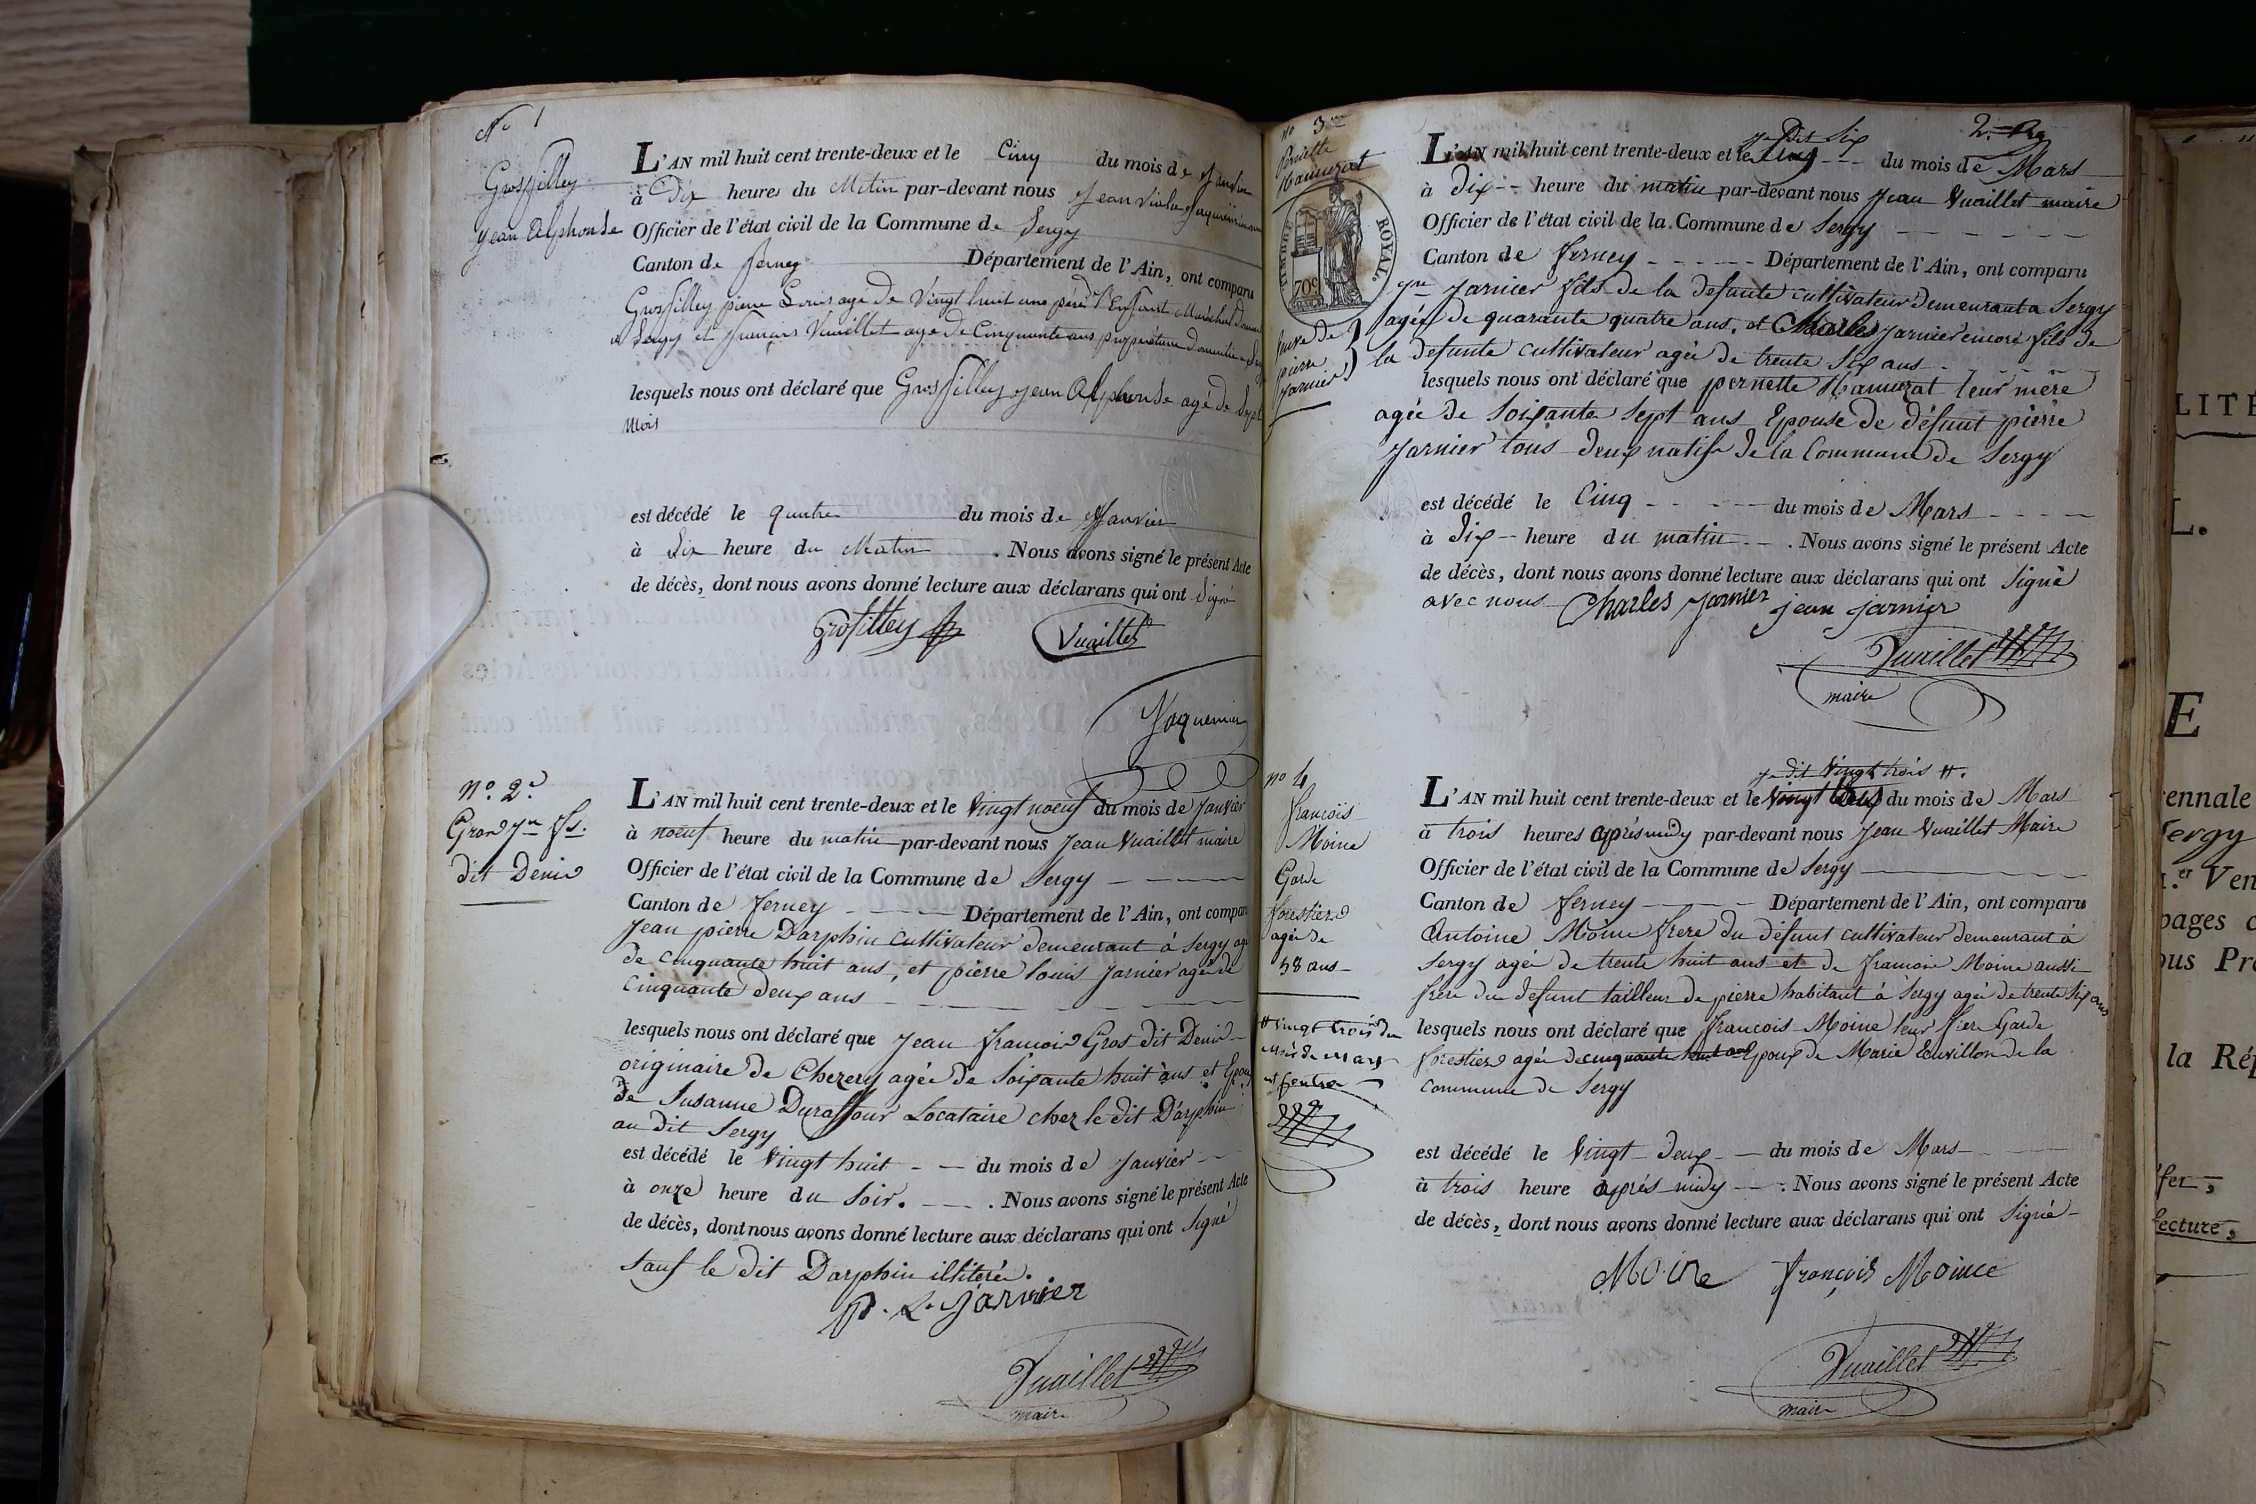 N° 1
Grosfilley
Jean Alphonse
L'AN mil huit cent trente-deux et le Cinq du mois de Janvier
à Dix heures du Matin par-devant nous Jean
Officier de l'état civil de la Commune de Sergy
Canton de Ferney Département de l'Ain, ont comparu
Grosfilley pierre Louis age de Vingt huit ans père de l'Enfant Marechal
a Sergy et françois Vuaillet age de Cinquante ans propriétaire
lesquels nous ont déclaré que Grosfilley Jean Alphonse agé de Sept
Mois
est décédé le quatre du mois de Janvier
à Dix heure du Matin . Nous avons signé le présent Acte
de décès, dont nous avons donné lecture aux déclarans qui ont Signé
Grosfilley Vuaillet
Jaquemier
N°. 2.d
Gros Jn fs.
dit Denis
L'AN mil huit cent trente-deux et le Vingt noeuf du mois de Janvier
à noeuf heure du matin par-devant nous Jean Vuaillet maire
Officier de l'état civil de la Commune de Sergy
Canton de ferney Département de l'Ain, ont comparu
Jean pierre Darphin cultivateur demeurant à Sergy agé
de cinquante huit ans, et pierre louis Jarnier agée de
Cinquante deux ans
lesquels nous ont déclaré que Jean francois Gros dit Denis
originaire de Chezery agée de Soixante huit ans et Epoux
de Susanne Duraffour Locataire chez le dit Darphin
au dit Sergy
est décédé le Vingt huit du mois de Janvier
à onze heure du Soir. . Nous avons signé le présent Acte
de décès, dont nous avons donné lecture aux déclarans qui ont Signé
Sauf le dit Darphin illiteré.
P. L. Jarnier
Vuaillet
maire
2.
N° 3
Pernette
Hamurat
TIMBRE ROYAL.
70c
veuve de
pierre
Jarnier
Je dit Six
L'AN mil huit cent trente-deux et le Cinq du mois de Mars
à Dix heure du matin par-devant nous Jean Vuaillet maire
Officier de l'état civil de la Commune de Sergy
Canton de ferney Département de l'Ain, ont comparu
Jn Jarnier fils de la defunte cultivateur demeurant a Sergy
agée de quarante quatre ans, et Charles Jarnier encore fils de
la defunte cultivateur agée de trente Six ans
lesquels nous ont déclaré que pernette Hamurat leur mere
agée de Soixante Sept ans Epouse de défunt pierre
Jarnier tous deux natifs de la Commune de Sergy
est décédé le Cinq du mois de Mars
à Dix heure du matin . Nous avons signé le présent Acte
de décès, dont nous avons donné lecture aux déclarans qui ont Signé
avec nous Charles Jarnier jean jarnier
Vuaillet
maire
n° 4
francois
Moine
Garde
forestier
agée de
58 ans
# Vingt trois du
mois de mars
Je dit Vingt trois #.
L'AN mil huit cent trente-deux et le Vingt deux du mois de Mars
à trois heures aprés midy par-devant nous Jean Vuaillet Maire
Officier de l'état civil de la Commune de Sergy
Canton de ferney Département de l'Ain, ont comparu
Antoine Moine frere du défunt cultivateur demeurant à
Sergy agée de trente huit ans et de francois Moine aussi
frere du defunt tailleur de pierre habitant à Sergy agée de trente Six ans
lesquels nous ont déclaré que francois Moine leur frere Garde
forestier agée de cinquante huit ans Epoux de Marie de la
commune de Sergy
est décédé le Vingt deux du mois de Mars
à trois heure aprés midy . Nous avons signé le présent Acte
de décès, dont nous avons donné lecture aux déclarans qui ont Signé
Moine françois Moine
Vuaillet
maire
LITÉ
L.
E
ennale
Sergy
er Ven
pages
ous Pr
la Ré
fer,
lecture,